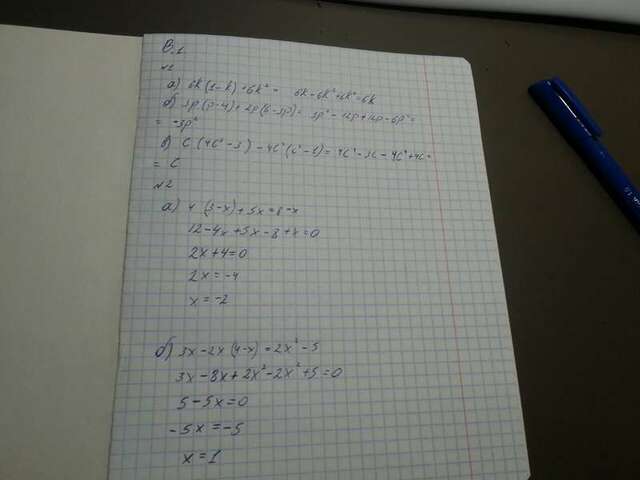 В.1
№1
а) 6k(1-k)+6k² = 6k-6k²+6k²=6k
б) 3p(p-4)+2p(6-3p)= 3p²-12p+12p-6p²=
= -3p²
в) C (4C²-3) - 4C²(C²-1)= 4C³-3C-4C³+4C=
= C
№2
а) 4 (3-x)+5x=8-x
12-4x+5x-8+x=0
2x+4=0
2x=-4
x=-2
б) 3x-2x(4-x)=2x²-5
3x-8x+2x²-2x²+5=0
5-5x=0
-5x=-5
x=1